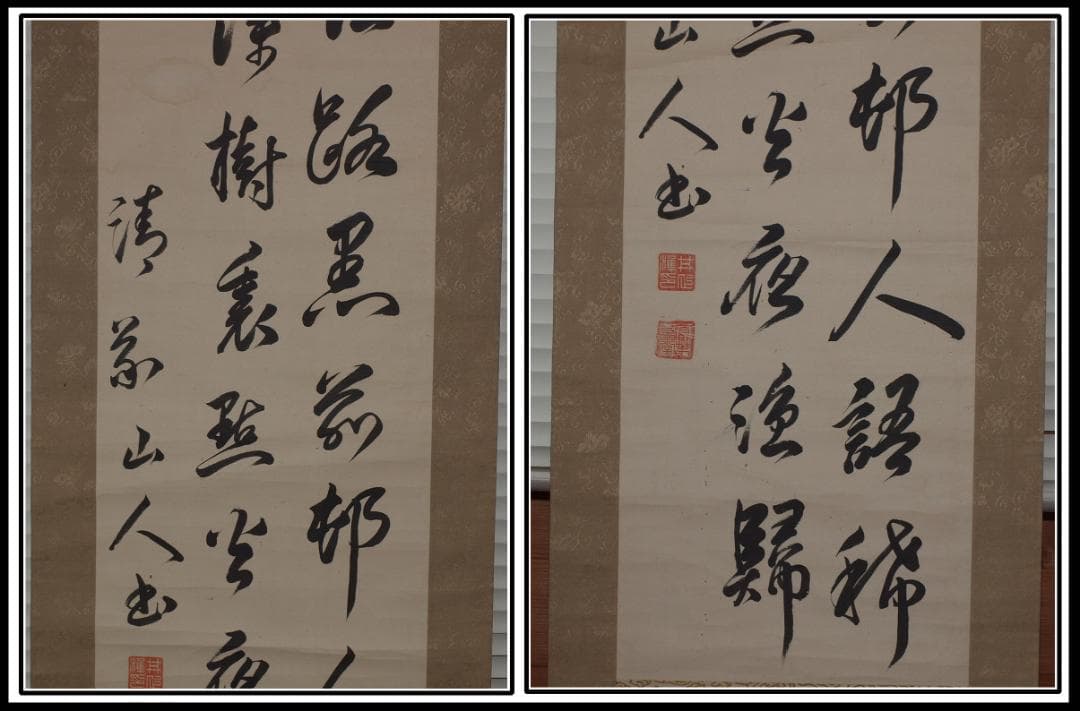 江路黒前邨人
深樹裏點火夜
山人書
邨人語稀
點火夜漁歸
山人書